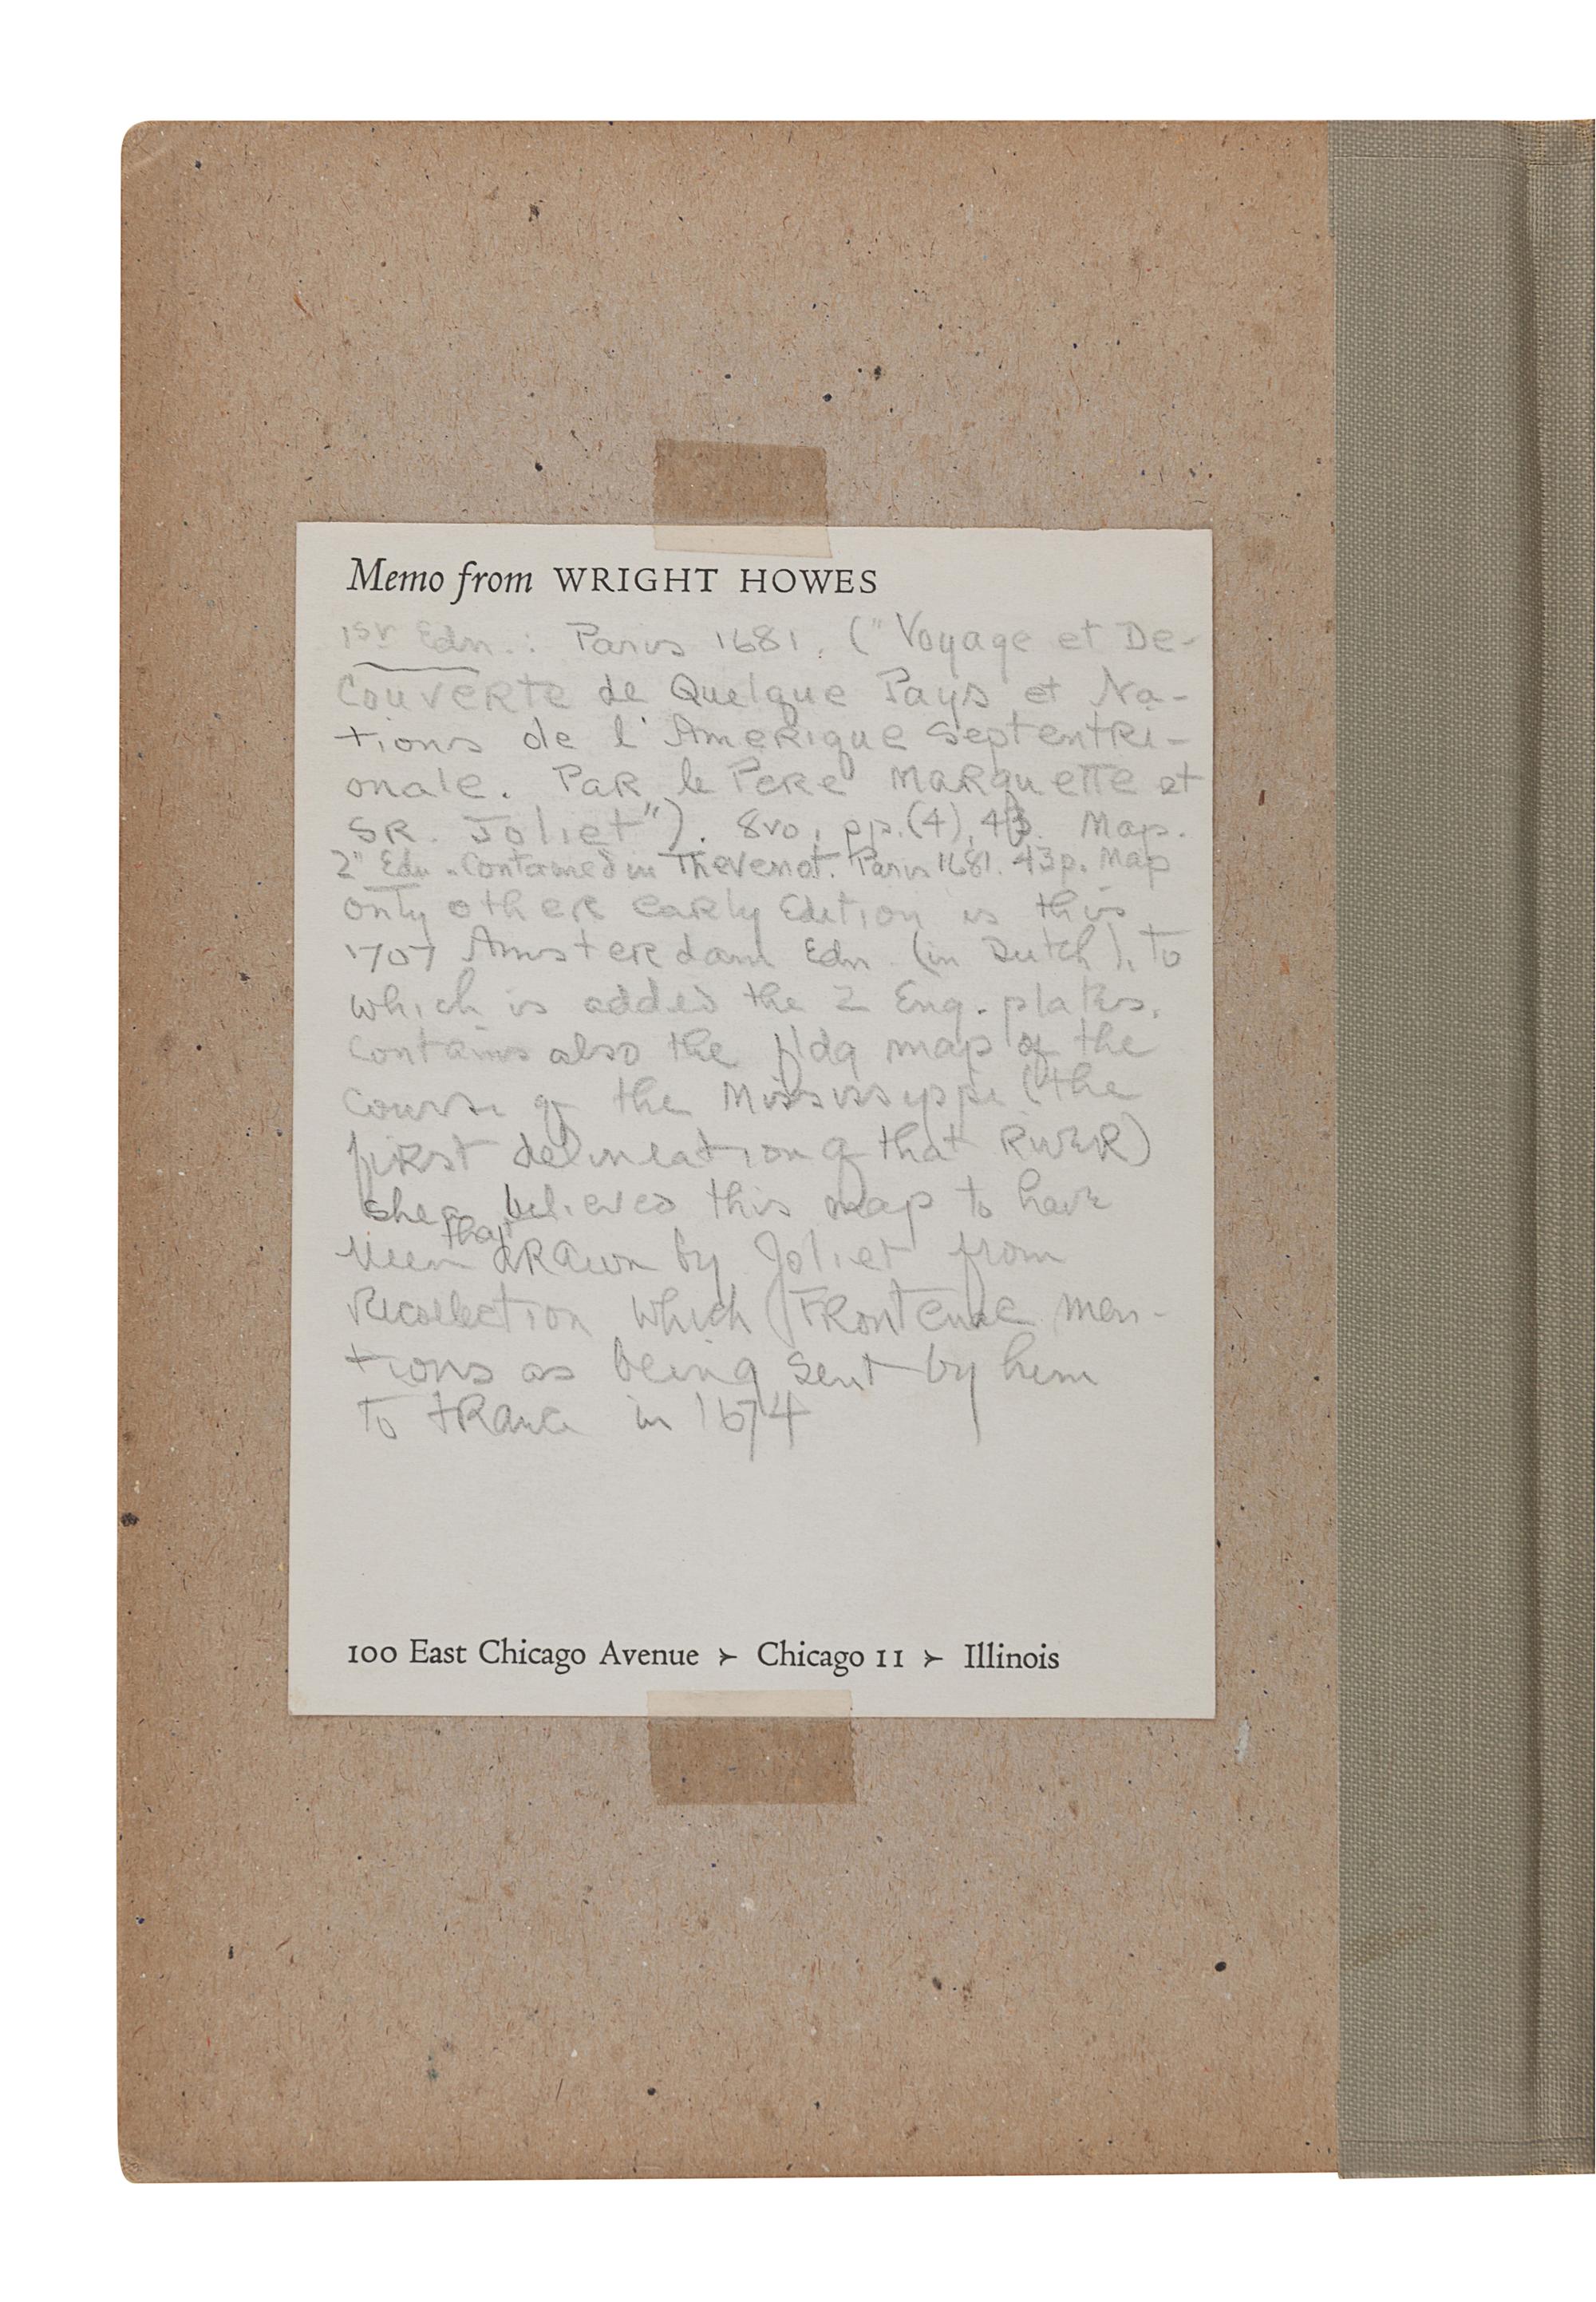 Memo from WRIGHT HOWES
1st Edn.: Paris 1681. ("Voyage et De-
couverte de Quelque Pays et Na-
tions de l'Amerique Septentri-
onale. Par le Pere Marquette et
Sr. Joliet"). 8vo, pp.(4), 43. Map.
2" Edn. Contained in Thevenot. Paris 1681. 43p. Map
only other early Edition is this
1707 Amsterdam Edn (in Dutch), to
which is added the 2 Eng. plates.
Contains also the fldg map of the
course of the Mississippi (the
first delineation of that River)
Shea believed this map to have
been that drawn by Joliet from
Recollection which Frontenac men-
tions as being sent by him
to France in 1674
100 East Chicago Avenue ➢ Chicago 11 ➢ Illinois